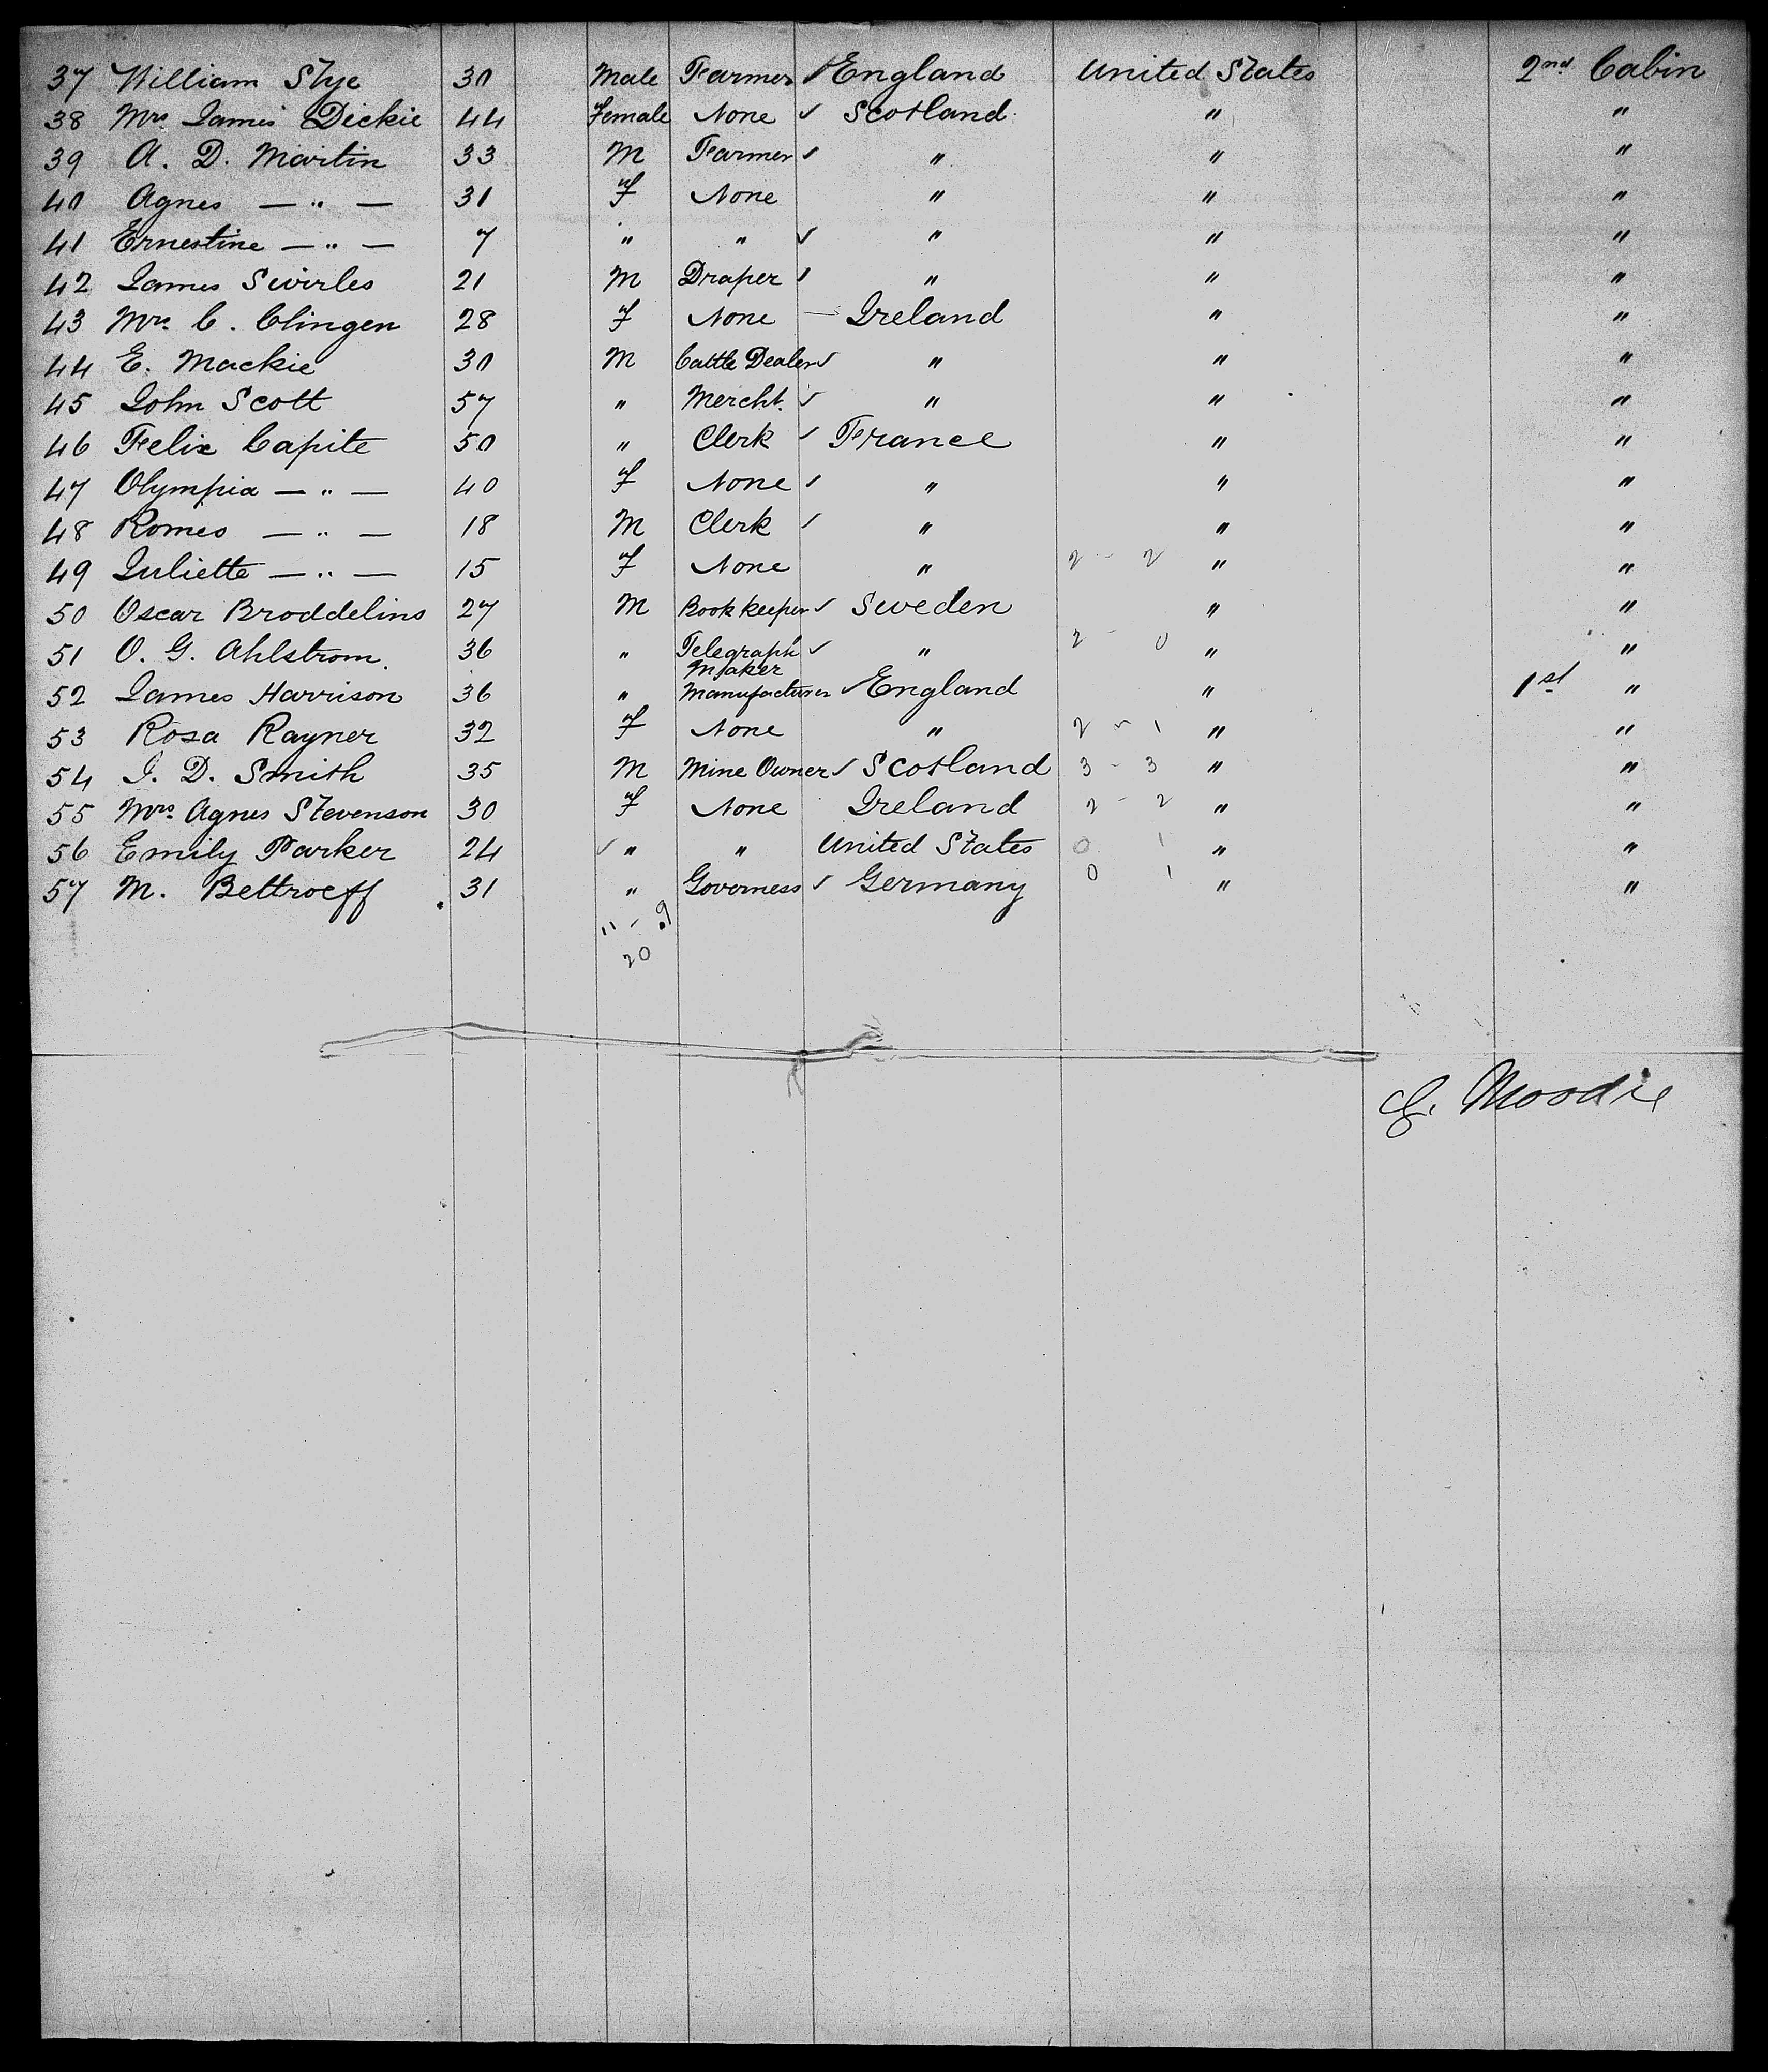 37 William Stye 30 Male Farmer ✓ England United States 2nd Cabin
38 Mrs James Dickie 44 Female None ✓ Scotland " "
39 A. D. Martin 33 M Farmer ✓ " " "
40 Agnes — " — 31 f None " " "
41 Ernestine — " — 7 " " ✓ " " "
42 James Swirles 21 M Draper ✓ " " "
43 Mrs C. Clingen 28 f None — Ireland " "
44 E. Mackie 30 M Cattle Dealer ✓ " " "
45 John Scott 57 " Mercht. ✓ " " "
46 Felix Capite 50 " Clerk ✓ France " "
47 Olympia — " — 40 f None ✓ " " "
48 Romeo — " — 18 M Clerk ✓ " " "
49 Juliette — " — 15 f None " 2 - 2 " "
50 Oscar Broddelins 27 M Book keeper ✓ Sweden " "
51 O. G. Ahlstrom. 36 " Telegraph Maker ✓ " 2 - 0 " "
52 James Harrison 36 " Manufacturer ✓ England " 1st "
53 Rosa Rayner 32 f None " 2 - 1 " "
54 J. D. Smith 35 M Mine Owner ✓ Scotland 3 - 3 " "
55 Mrs. Agnes Stevenson 30 f None Ireland 2 - 2 " "
56 Emily Parker 24 ✓ " " United States 0 1 " "
57 M. Beltroeff 31 " Governess ✓ Germany 0 1 " "
11 - 9
20
Moodie